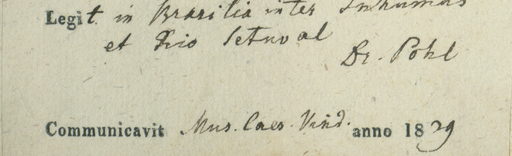 Legit in Brasilia inter Inhumas
et Rio Setuval
Dr. Pohl
Communicavit Mus. Caes. Vind. anno 1839